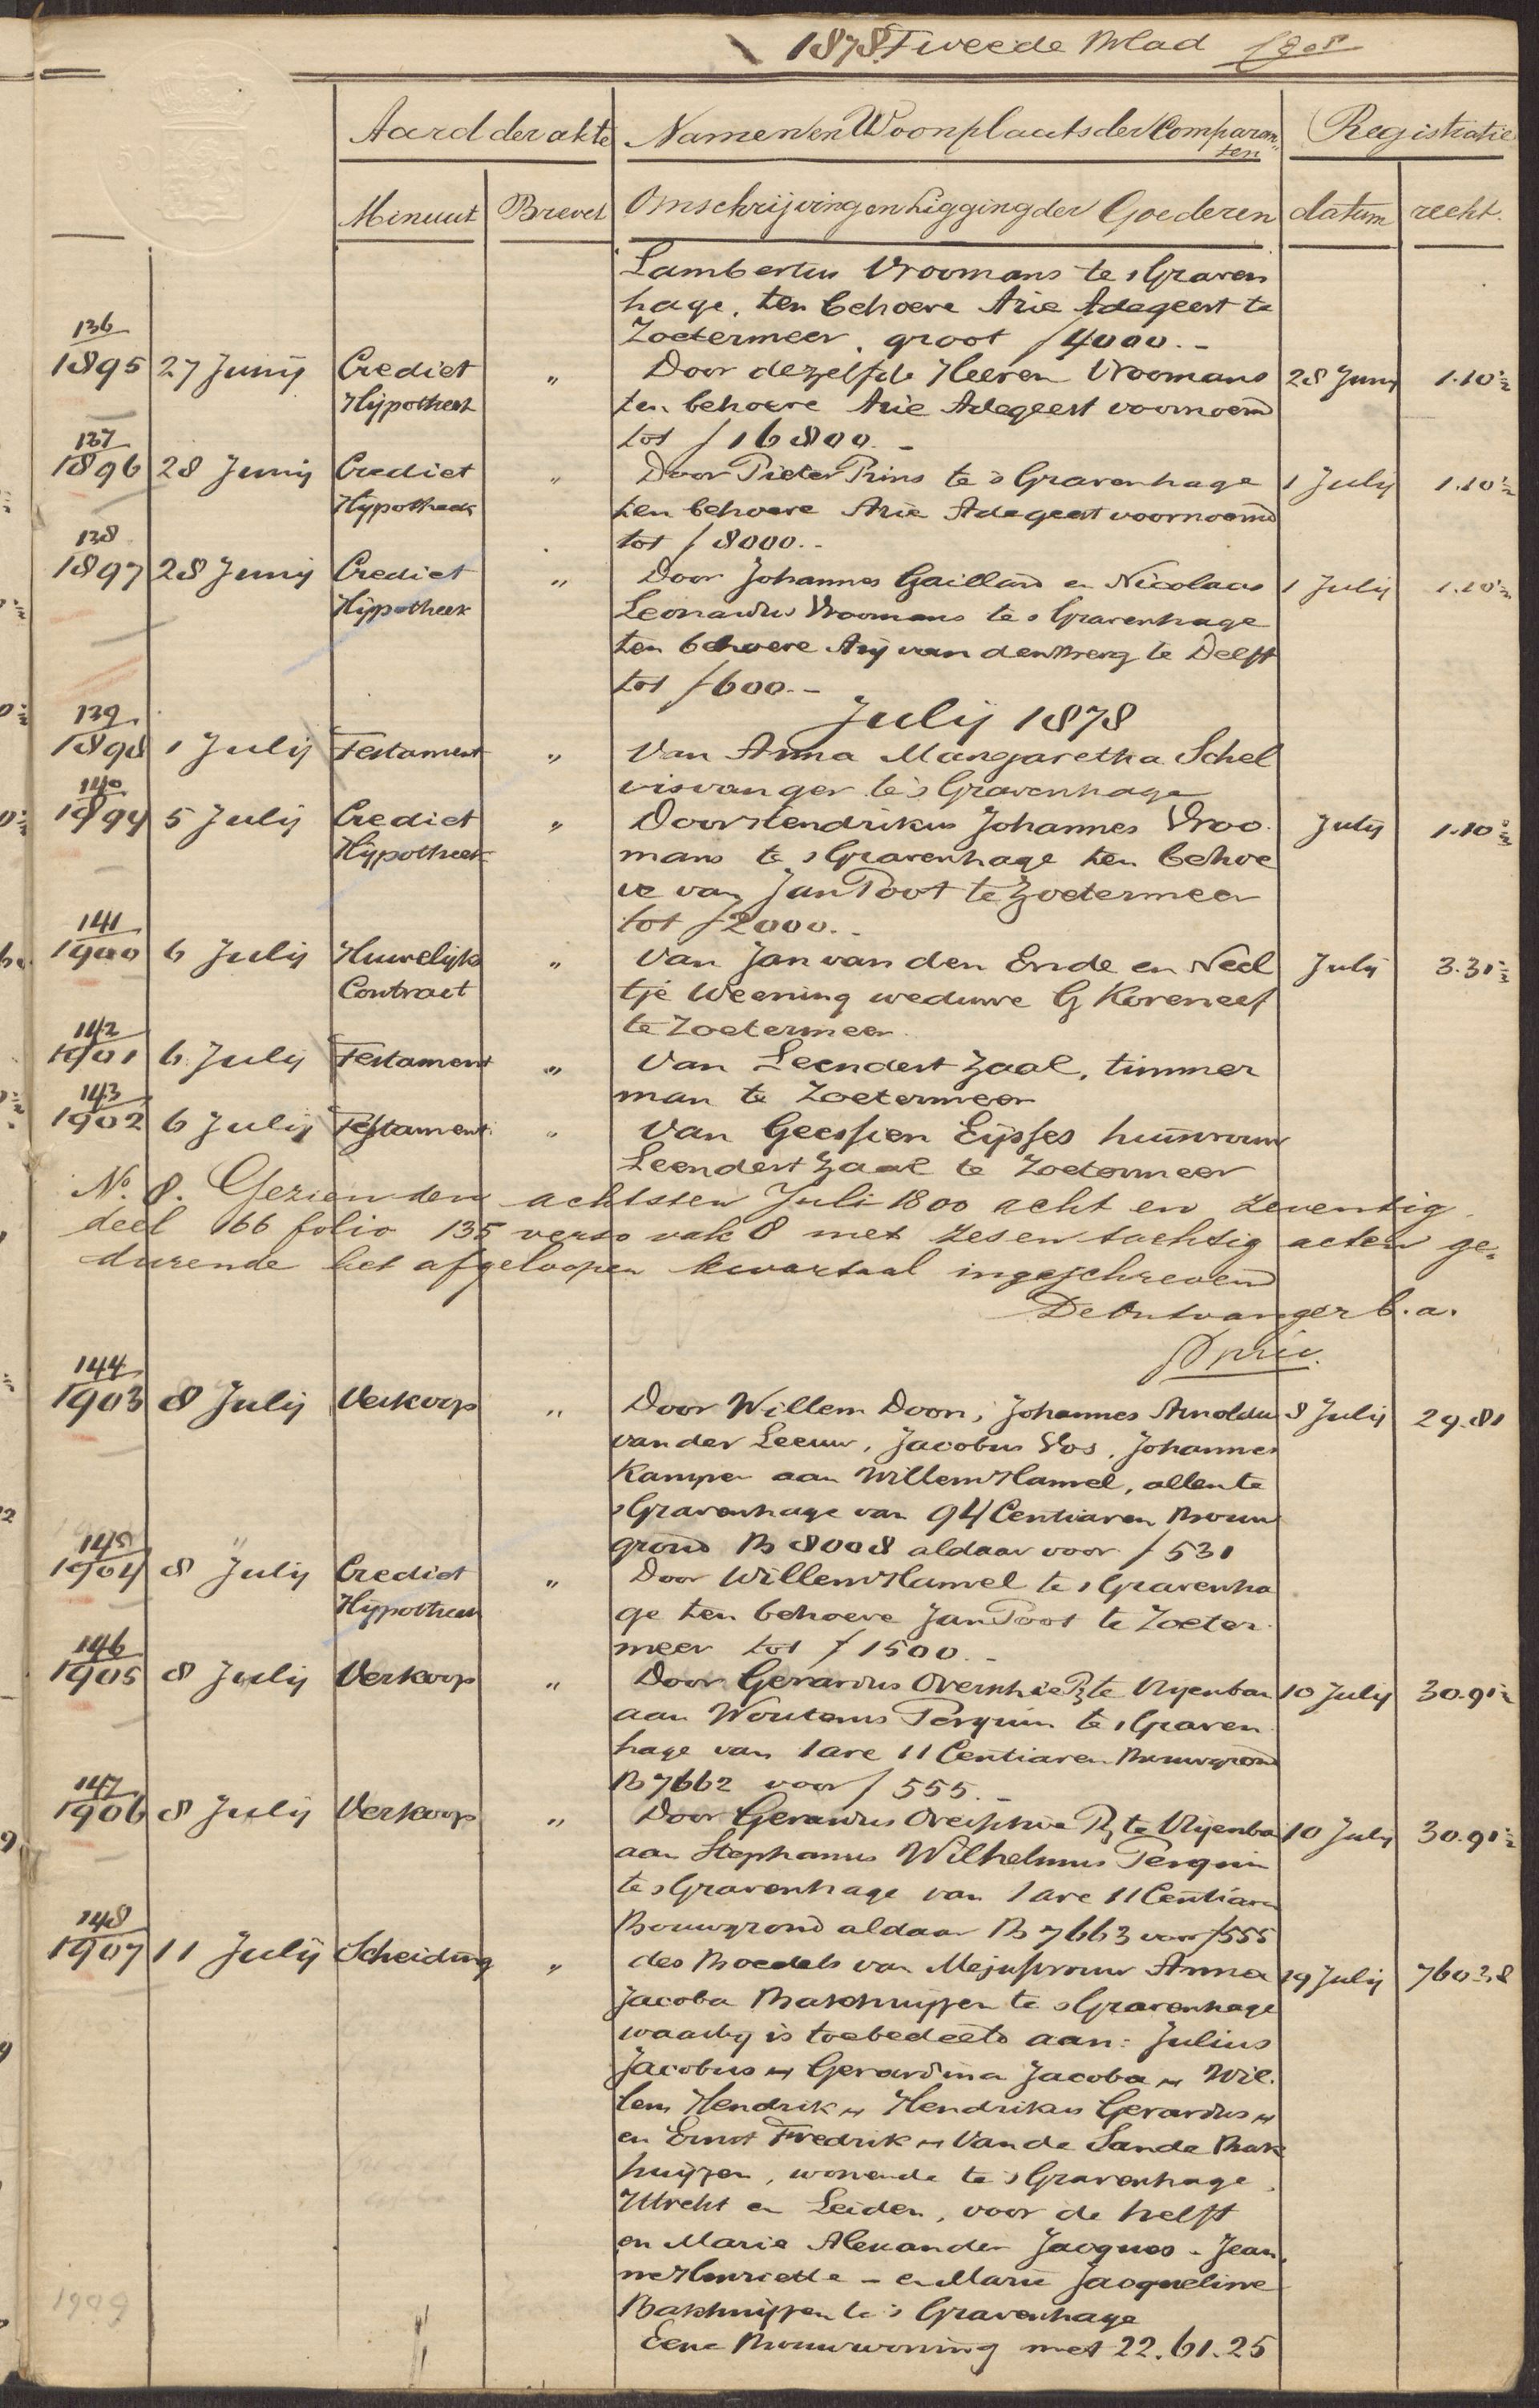 1878. Tweede Blad
Aard der akte Namen en Woonplaats der Comparan" Registratie
ten
Minuut Brevet Omschrijving en Ligging der Goederen datum recht.
Lambertus Vroomans te sGraven
hage, ten behoeve Arie Adegeest te
136 Zoetermeer, groot f 4000.-
1895 27 Junij Crediet " Door dezelfde Heeren Vroomans 28 Junij 1.10½
Hijpotheek ten behoeve Arie Adegeest voornoemd
137 tot f 16800.-
1896 28 Junij Crediet " Door Pieter Prins te 's Gravenhage 1 Julij 1.10½
Hijpotheek ten behoeve Arie Adegeest voornoemd
138 tot f 8000.-
1897 28 Junij Crediet " Door Johannes Gaillard en Nicolaas 1 Julij 1.10½
Hijpotheek Leonardus Vroomans te sGravenhage
ten behoeve Arij van den Berg te Delft
tot f 600.-
139 Julij 1878
1898 1 Julij Testament " Van Anna Margaretha Schel
140 visvanger te 's Gravenhage
1899 5 Julij Crediet " Door Hendrikus Johannes Vroo Julij 1.10½
Hijpotheek mans te sGravenhage ten behoe
ve van Jan Poot te Zoetermeer
141 tot f 2000.-
1900 6 Julij Huwelijks " Van Jan van den Ende en Neel Julij 3.31½
Contract tje Weening weduwe G Koreneef
142 te Zoetermeer.
1901 6 Julij Testament " Van Leendert Zaal, timmer
143 man te Zoetermeer
1902 6 Julij Testament " Van Geessien Eijsses huisvrouw
Leendert Zaal te Zoetermeer
No. 8. Gezien den achtsten Juli 1800 acht en zeventig
deel 66 folio 135 verso vak 8 met zes en tachtig acten ge=
durende het afgeloopen kwartaal ingeschreven
De Ontvanger b.a.
144
1903 8 Julij Verkoop " Door Willem Doorn, Johannes Arnoldus 8 Julij 29.81
van der Leeuw, Jacobus Vos, Johannes
Kamper aan Willem Hamel, allen te
sGravenhage van 94 Centiaren Bouw
145 grond B 8008 aldaar voor f 531
1904 8 Julij Crediet " Door Willem Hamel te sGravenha
Hijpotheek ge ten behoeve Jan Poot te Zoeter
146 meer tot f 1500.-
1905 8 Julij Verkoop " Door Gerardus Overschie Pz te Vrijenban 10 Julij 30.91½
aan Wouterus Perquin te sGraven
hage van 1 are 11 Centiaren Bouwgrond
147 B 7662 voor f 555.-
1906 8 Julij Verkoop " Door Gerardus Overschie Pz te Vrijenba 10 Julij 30.91½
aan Stephanus Wilhelmus Perquin
te sGravenhage van 1 are 11 Centiaren
148 Bouwgrond aldaar B 7663 voor f 555
1907 11 Julij Scheiding " des Boedels van Mejufvrouw Anna 19 Julij 760.38
Jacoba Bakhuijzen te sGravenhage
waarbij is toebedeeld aan: Julius
Jacobus Gerardina Jacoba Wil
lem Hendrik Hendrikus Gerardus
en Ernst Fredrik Van de Sande Bak
huijzen, wonende te 's Gravenhage,
Utrecht en Leiden, voor de helft
en Marie Alexander Jacques - Jean
ne Henriette - en Marie Jacqueline
Bakhuijzen te 's Gravenhage
Eene Bouwwoning met 22.61.25
1909